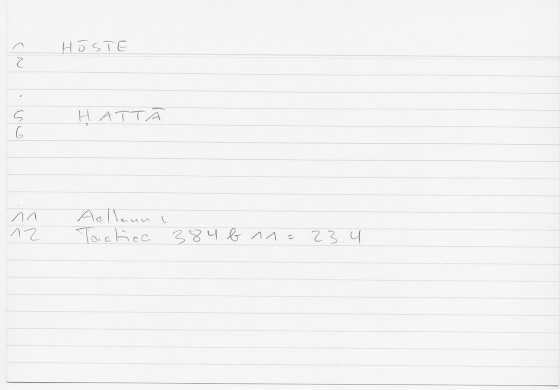 1 HŌSTE
2
.
5 ḤATTĀ
6
11 Aelian i
12 Tactica 384 b 11 = 23 4